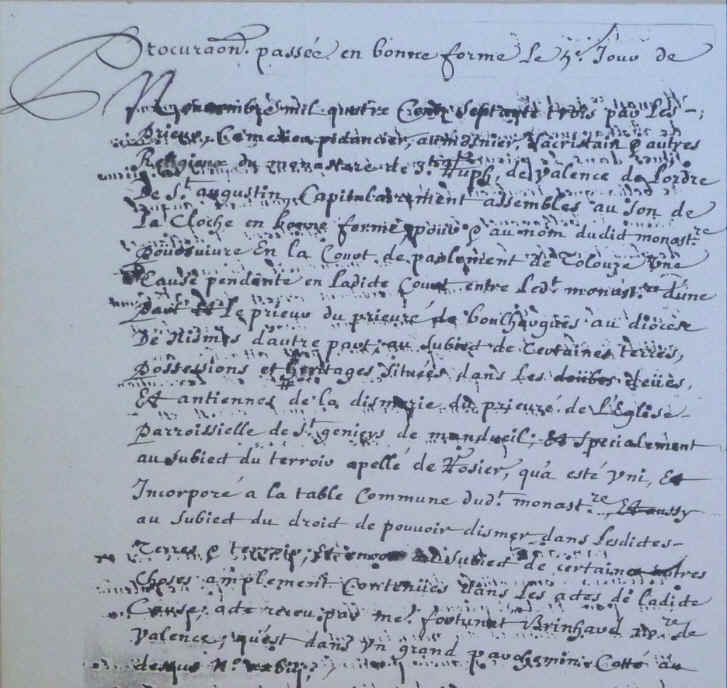 Procuraon. passée en bonne forme le 5e. Jour de
Novembre mil quatre Cens septante trois par les
Prieur, Camerier, pidancier, aumosnier, Sacristain & autres
Religieux du monastere de St. Ruph, de Valence de lordre
De St. augustin, Capitulairement assembles au son de
La Cloche en bonne forme pour & au nom dudit monastre
Poursuivre En la Court de parlement de Tolouze Une
Cause pendente en Ladicte Court entre Ledt. monastre. dune
part Et Le prieur du prieuré de bouilhargues au diocese
De Nismes d'autre part, au subiect de Certaines terres,
Possessions et heritages situées dans les
Et antiennes de la dismerie du prieuré de L'Eglise
Parroissielle de St. genieys de mandueil; Et specialement
au subiect du terroir apellé de Rosier, qu'a esté Uni, Et
Incorporé a la table Commune dudt. monastre., Et aussy
au subiect du droit de pouvoir dismer dans lesdictes
Terres & terroir, Et encore au subiect de certaines autres
Choses amplement Contenues dans les actes de ladicte
Cause; acte receu par me. fortunet Brinhave de
Valence, qu'est dans Un grand parchemin Cotté au